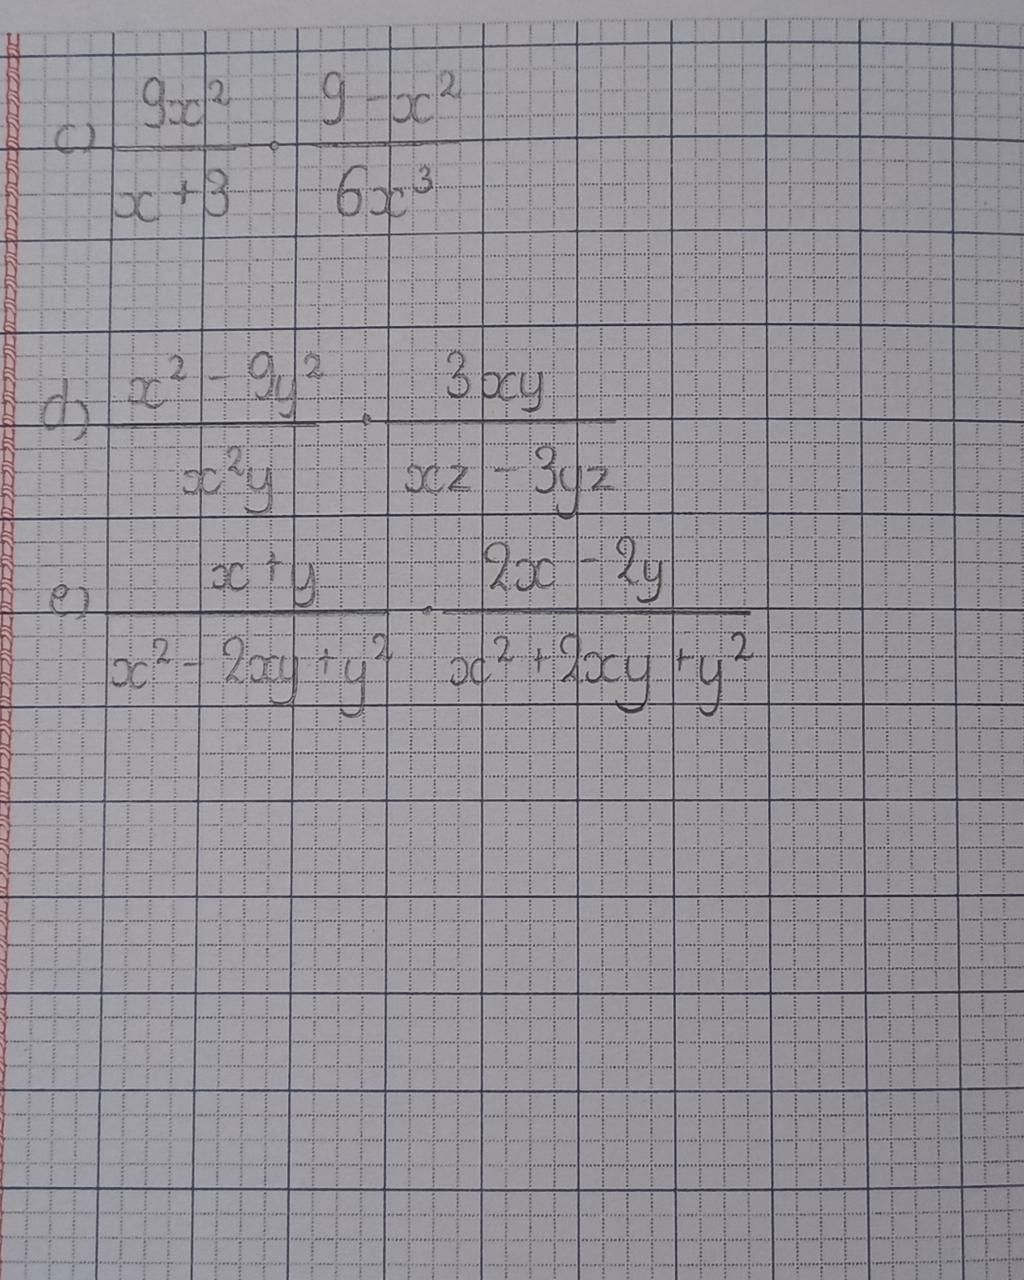 c) 9x²/x+3 · 9-x²/6x³
d) x²-9y²/x²y · 3xy/xz-3yz
e) x+y/x²-2xy+y² · 2x-2y/x²+2xy+y²